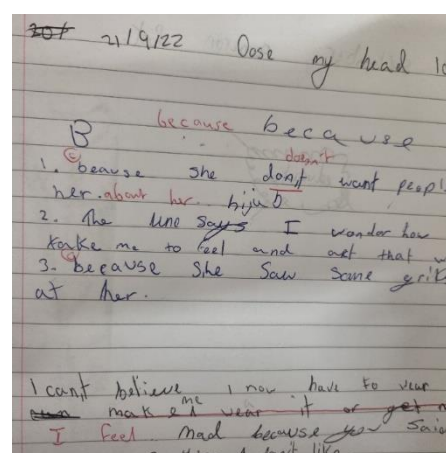 21/9/22 Dose my head lo
because because
B
1. beause she don,t doesn't want peopl
her. about her. hijub
2. The line says I wonder how
take me to feel and act that w
3. because she saw some gril
at her.
I can,t believe I now have to wear
maked me wear it or get
I feel mad because you said